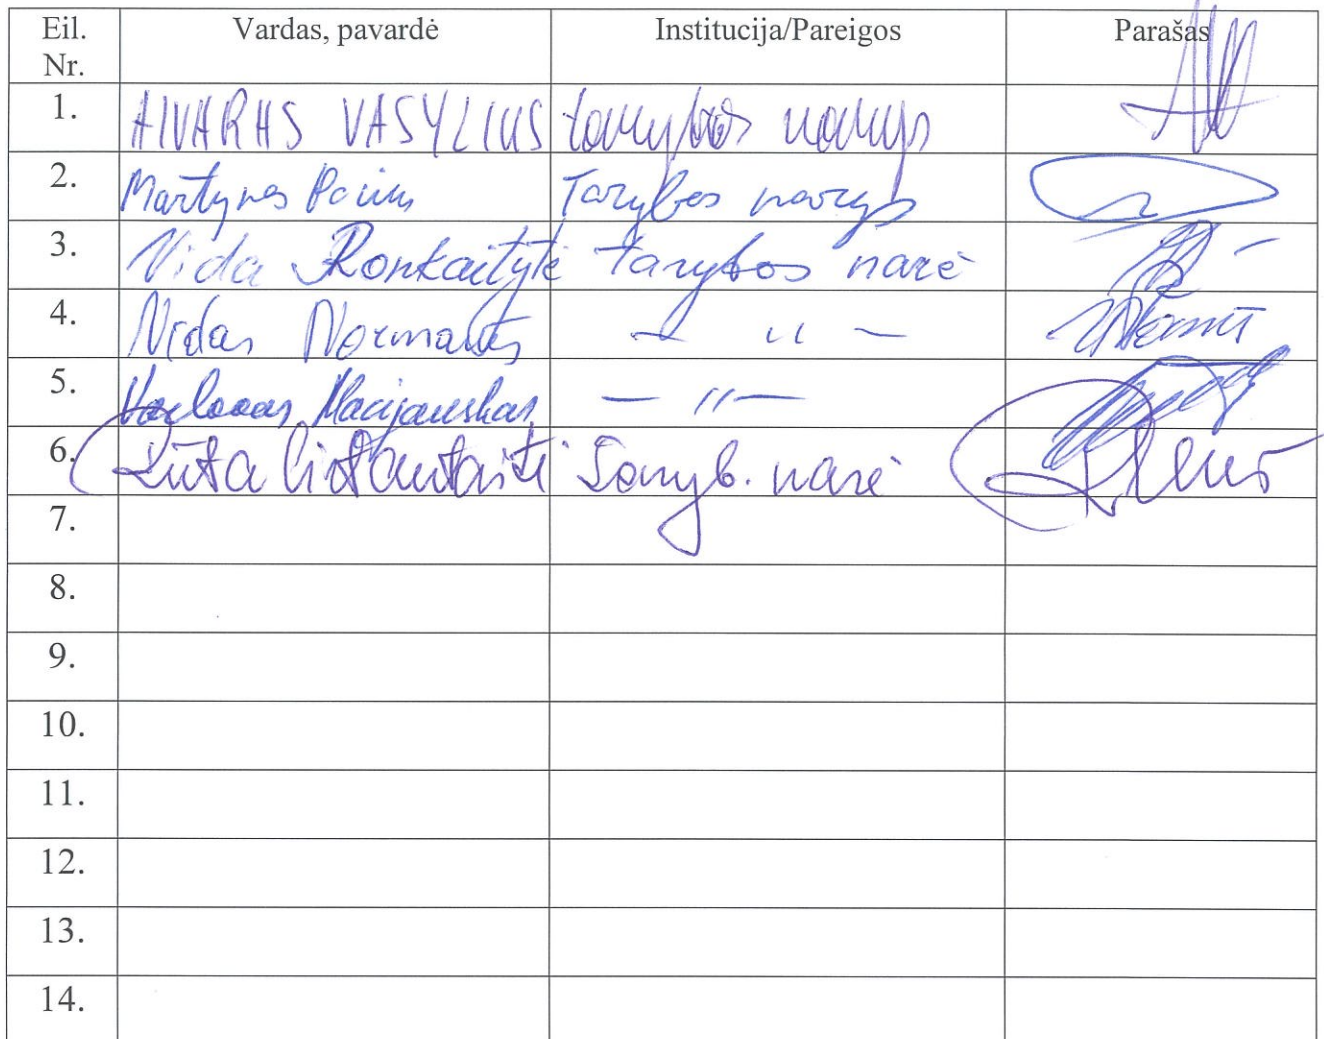 Eil. Nr. Vardas, pavardė Institucija/Pareigos Parašas
1. AIVARAS VASYLIUS tarybos narys
2. Martynas Tarybos narys
3. Vida Ronkaitytė tarybos narė
4. Vidas Normantas — ״ —
5. Macijauskas — ״ —
6. Rūta Taryb. narė
7.
8.
9.
10.
11.
12.
13.
14.